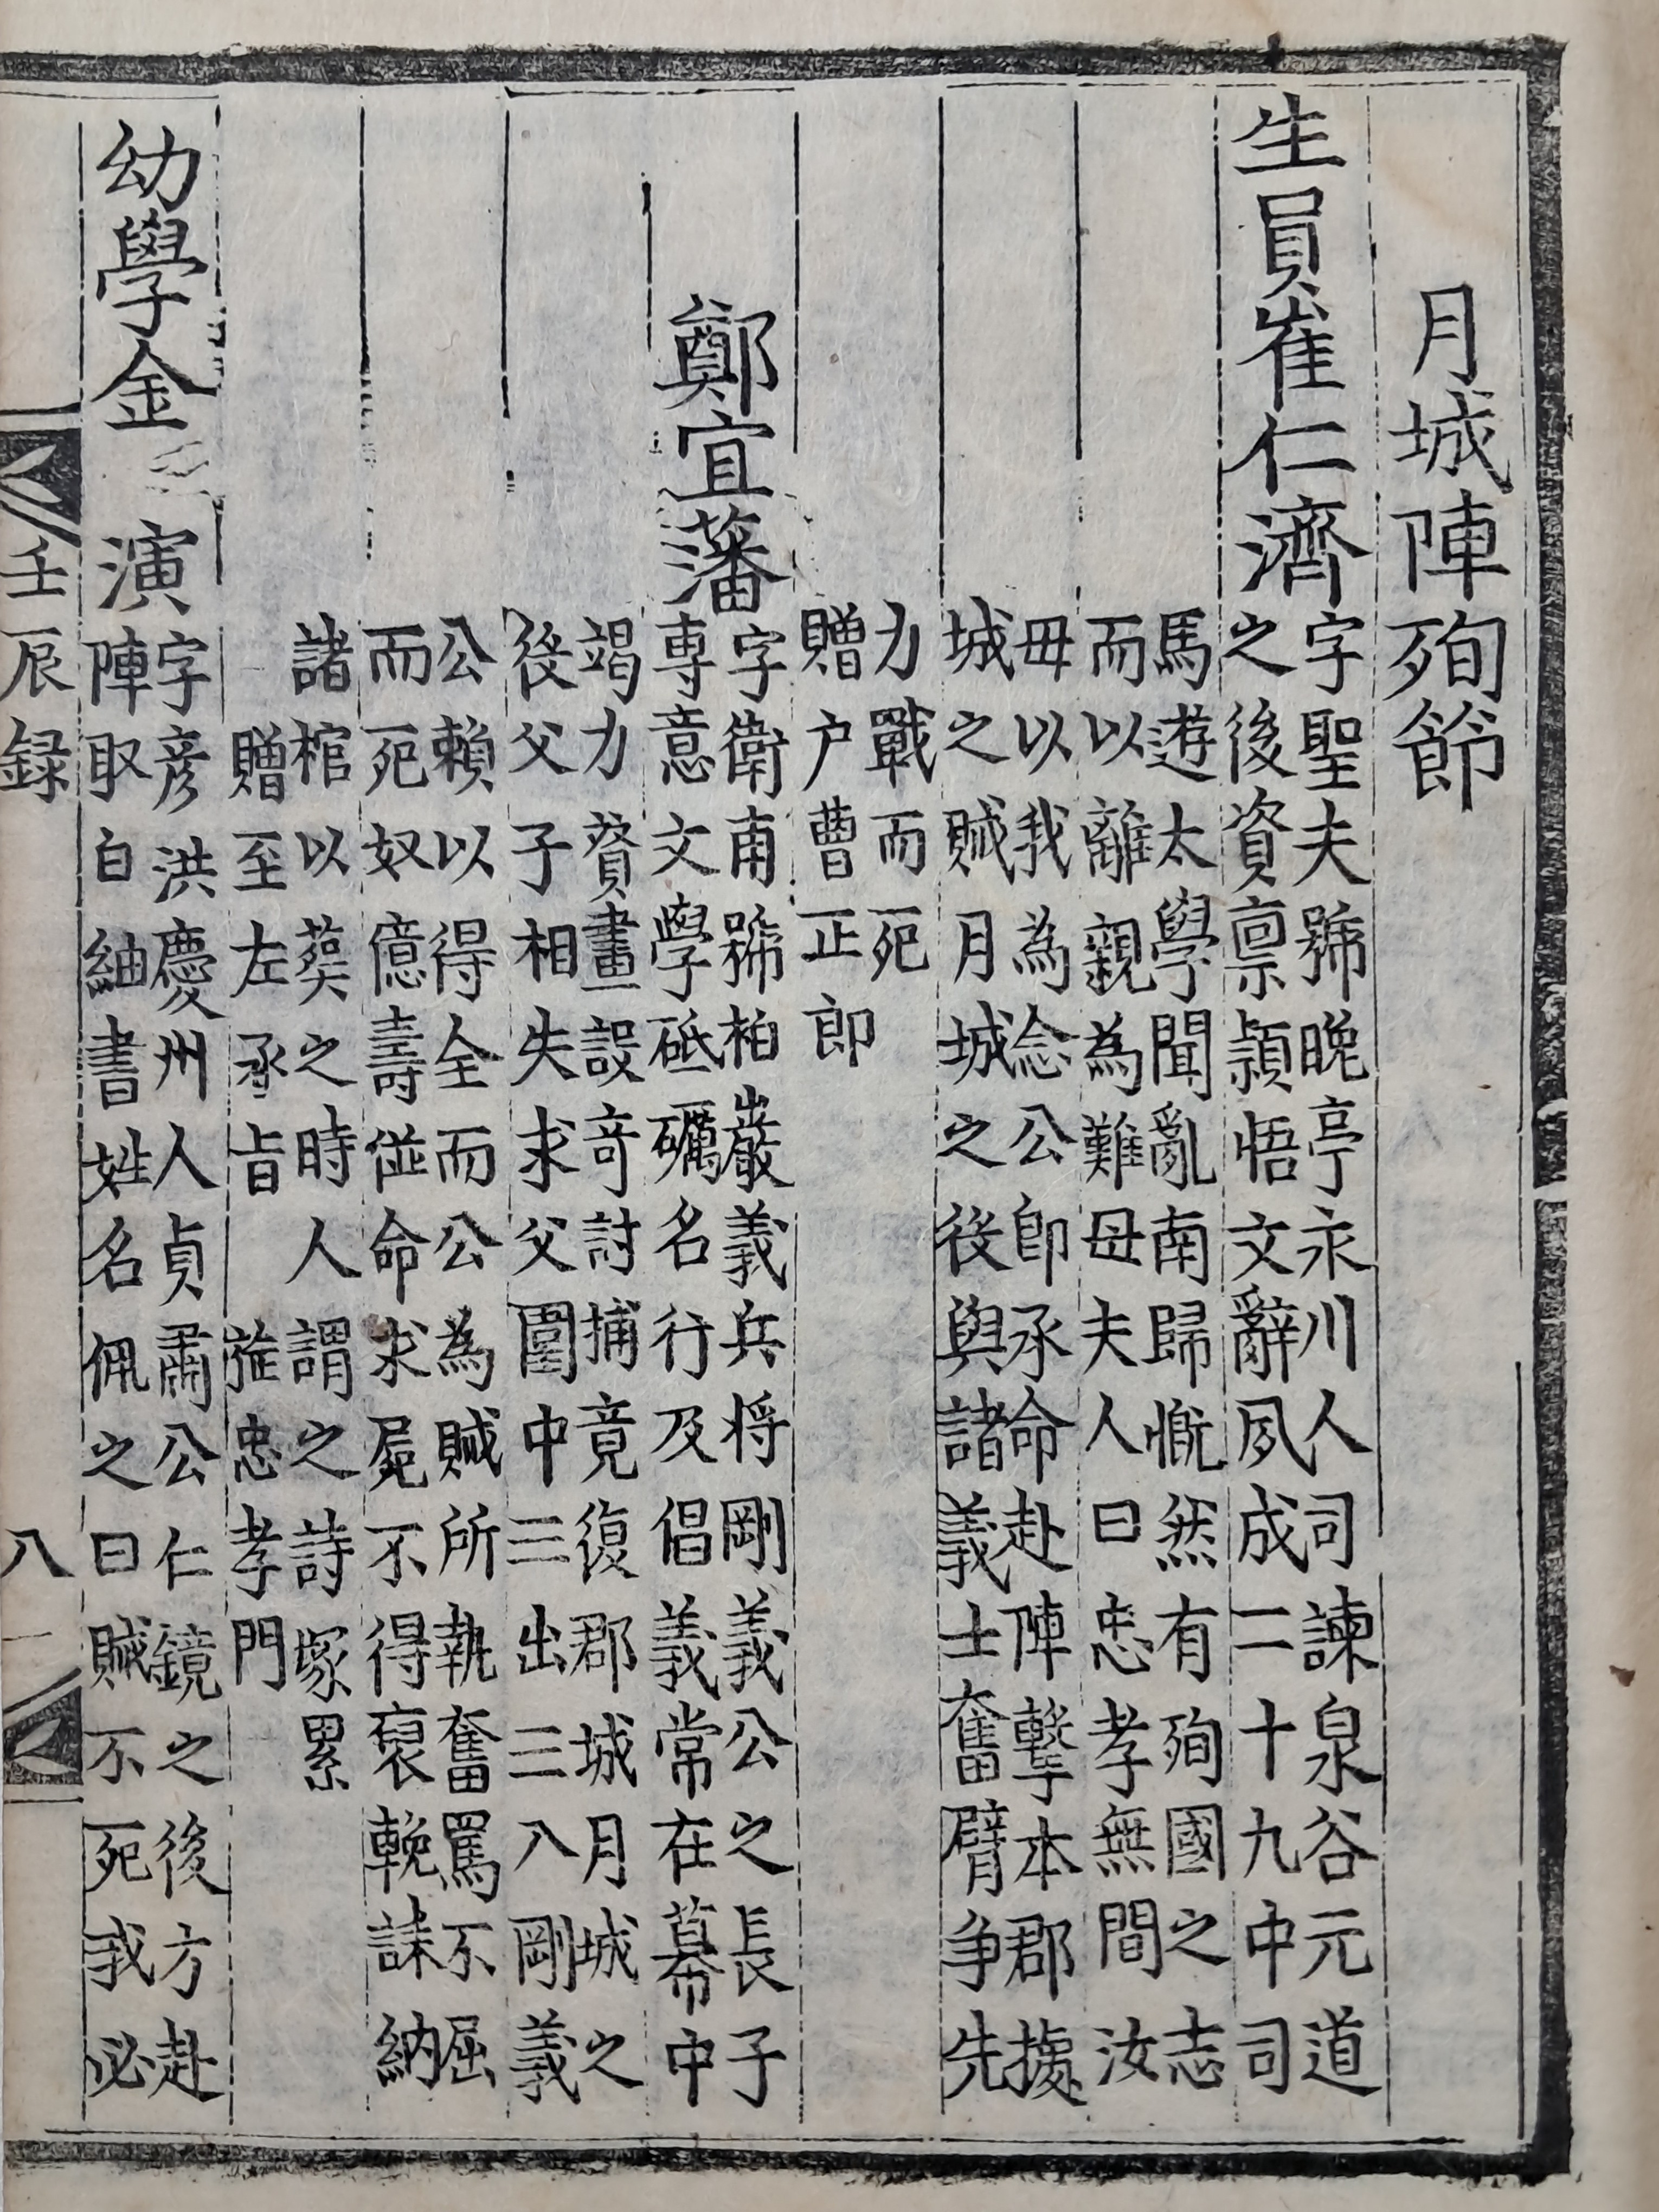 月城陣殉節
生員崔仁濟
字聖夫號晚亭永川人司諫泉谷元道
之後資稟穎悟文辭夙成二十九中司
馬遊太學聞亂南歸慨然有殉國之志
而以離親為難母夫人曰忠孝無間汝
毋以我為念公卽承命赴陣擊本郡據
城之賊月城之後與諸義士奮臂爭先
力戰而死
贈户曹正郎
鄭宜藩
字衛甫號柏巖義兵将剛義公之長子
專意文學砥礪名行及倡義常在幕中
竭力贊畫設奇討捕竟復郡城月城之
後父子相失求父圍中三出三入剛義
公賴以得全而公為賊所執奮罵不屈
而死奴億壽並命求屍不得裒輓誄納
諸棺以葬之時人謂之詩塚累
贈至左承旨 㫌忠孝門
幼學金演
字彦洪慶州人貞肅公仁鏡之後方赴
陣取白紬書姓名佩之曰賊不死我必
壬辰録
八